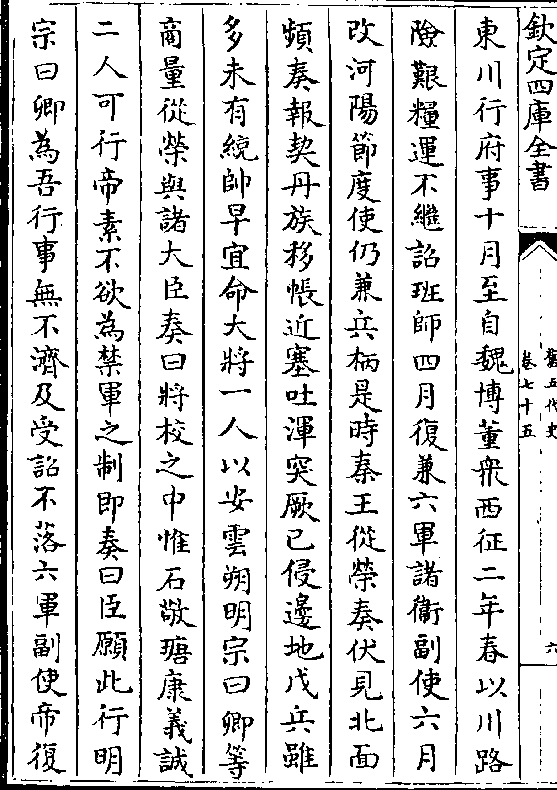 欽定四庫全書
舊五代史
卷七十五
六
東川行府事十月至自魏博董衆西征二年春以川路
險艱糧運不繼詔班師四月復兼六軍諸衞副使六月
改河陽節度使仍兼兵柄是時秦王從榮奏伏見北面
頻奏報契丹族移帳近塞吐渾突厥已侵邊地戍兵雖
多未有統帥早宜命大將一人以安雲朔明宗曰卿等
商量從榮與諸大臣奏曰將校之中惟石敬瑭康義誠
二人可行帝素不欲為禁軍之制即奏曰臣願此行明
宗曰卿為吾行事無不濟及受詔不落六軍副使帝復